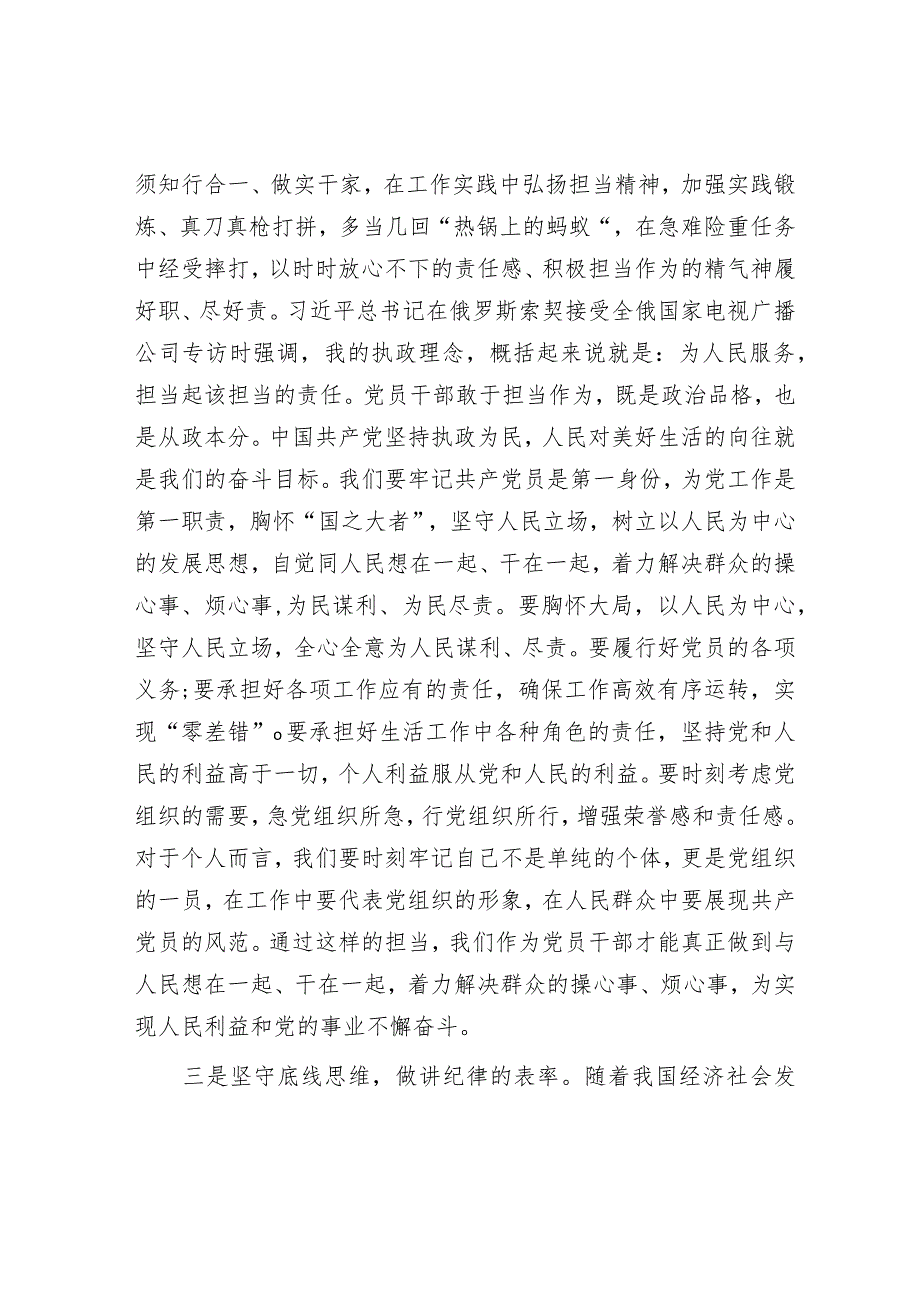 须知行合一、做实干家，在工作实践中弘扬担当精神，加强实践锻
炼、真刀真枪打拼，多当几回“热锅上的蚂蚁“，在急难险重任务
中经受摔打，以时时放心不下的责任感、积极担当作为的精气神履
好职、尽好责。习近平总书记在俄罗斯索契接受全俄国家电视广播
公司专访时强调，我的执政理念，概括起来说就是：为人民服务，
担当起该担当的责任。党员干部敢于担当作为，既是政治品格，也
是从政本分。中国共产党坚持执政为民，人民对美好生活的向往就
是我们的奋斗目标。我们要牢记共产党员是第一身份，为党工作是
第一职责，胸怀“国之大者”，坚守人民立场，树立以人民为中心
的发展思想，自觉同人民想在一起、干在一起，着力解决群众的操
心事、烦心事,为民谋利、为民尽责。要胸怀大局，以人民为中心，
坚守人民立场，全心全意为人民谋利、尽责。要履行好党员的各项
义务;要承担好各项工作应有的责任，确保工作高效有序运转，实
现“零差错”o要承担好生活工作中各种角色的责任，坚持党和人
民的利益高于一切，个人利益服从党和人民的利益。要时刻考虑党
组织的需要，急党组织所急，行党组织所行，增强荣誉感和责任感。
对于个人而言，我们要时刻牢记自己不是单纯的个体，更是党组织
的一员，在工作中要代表党组织的形象，在人民群众中要展现共产
党员的风范。通过这样的担当，我们作为党员干部才能真正做到与
人民想在一起、干在一起，着力解决群众的操心事、烦心事，为实
现人民利益和党的事业不懈奋斗。
三是坚守底线思维，做讲纪律的表率。随着我国经济社会发